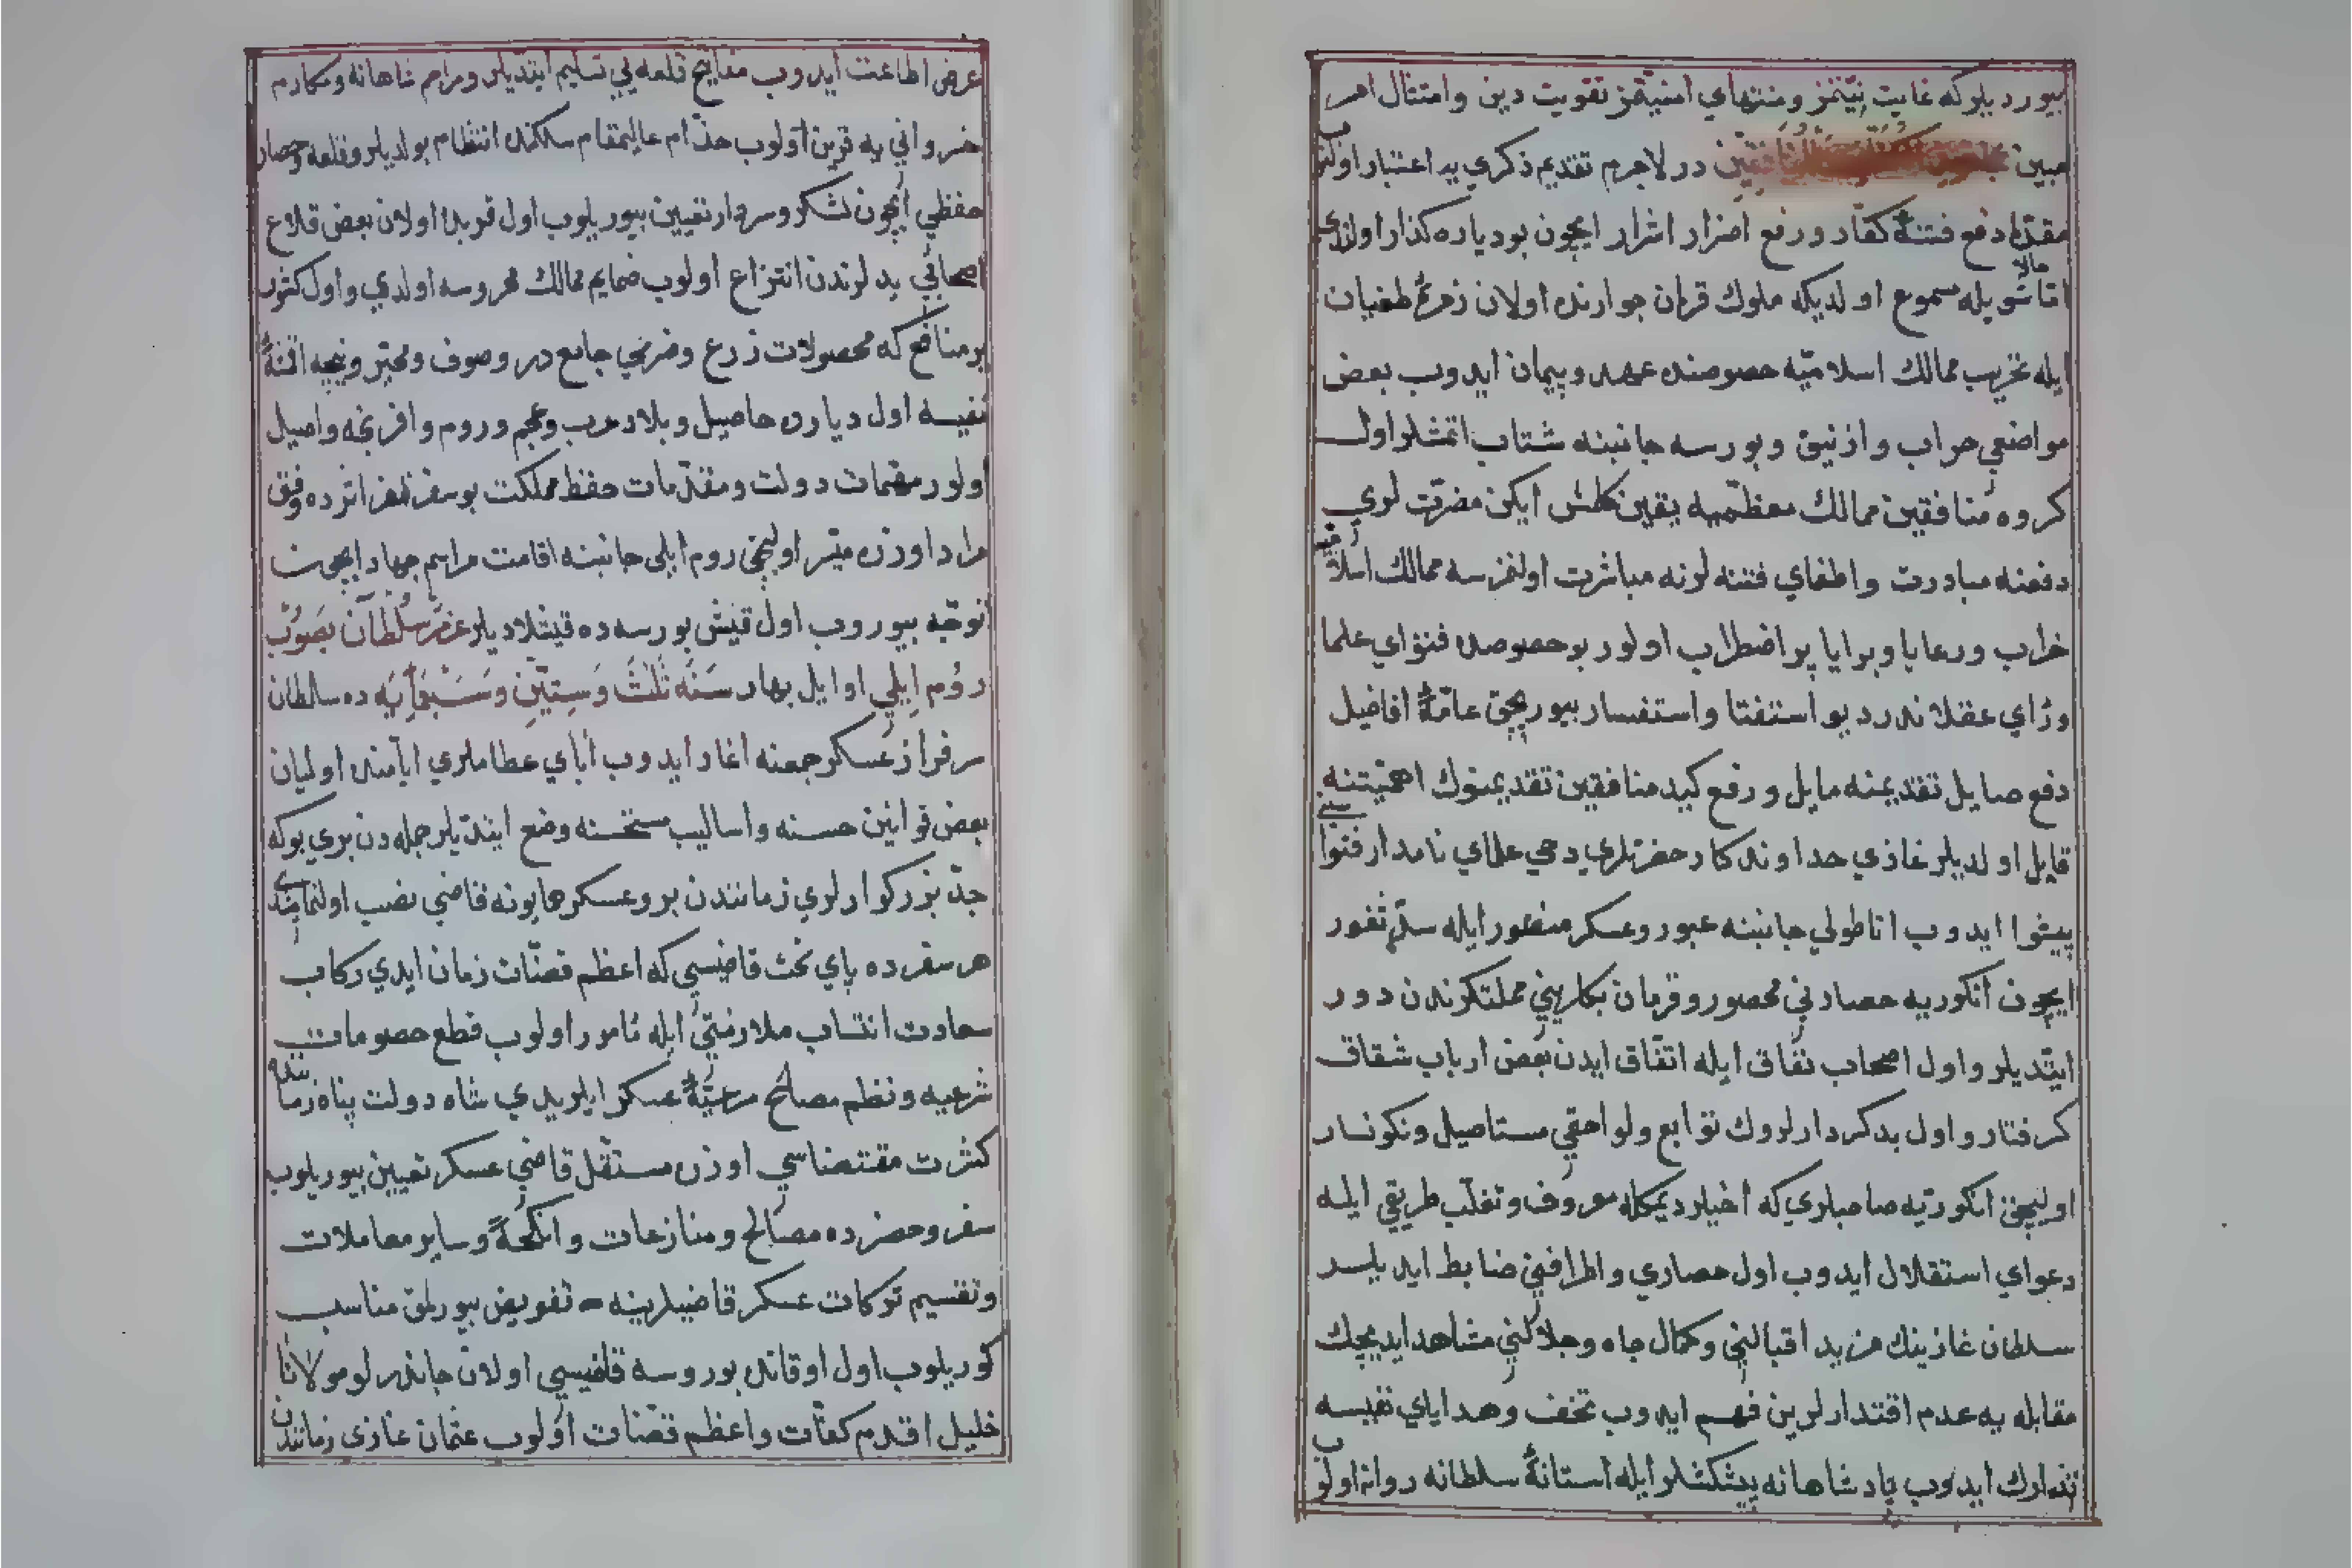 بيورديلركه غايت نيتمز ومنتهاي امنيتمز تقويت دين وامتثال امر
مبين در لاجرم تقديم ذكري يه اعتبار اولنوب
مقدما دفع فتنهٔ كفار ورفع اضرار اشرار ايچون بو دياره كذار اولندي
اما شويله مسموع اولديكه حالا ملوك قرمان جوارنده اولان زمرهٔ طغيان
ايله تخريب ممالك اسلاميه خصوصنده عهد وپيمان ايدوب بعض
مواضعي خراب وازنيق وبورسه جانبنه شتاب اتمشلر اول
كروه منافقين ممالك معظميه يقين كلمش ايكن مضرت لري
دفعنه مبادرت واطفاي فتنه لرنه مباشرت اولنمزسه ممالك اسلاميه
خراب ورعايا وبرايا پر اضطراب اولور بو خصوصده فتواي علما
وراي عقلا ندر ديو استفتا واستفسار بيوريجق عامهٔ افاضل
دفع صايل تقديمنه مايل ورفع كيد منافقين تقديمنوك اهميتنه
قايل اولديلر غازي خداوندكار حضرتلري دخي علماي نامدار فتواسني
پيشوا ايدوب اناطولي جانبنه عبور وعسكر منصور ايله سد ثغور
ايچون انكوريه حصارني محصور وقرمان بكلريني مملكتلرندن دور
ايتديلر واول اصحاب نفاق ايله اتفاق ايدن بعض ارباب شقاق
كرفتار واول بدكردارلروك توابع ولواحقي مستاصل ونكونسار
اوليجق انكوريه صاحبلري كه اخيلر ديمكله معروف وتغلب طريقي ايله
دعواي استقلال ايدوب اول حصاري واطرافني ضابط ايديلر
سلطان غازينك مزيد اقبالني وكمال جاه وجلالني مشاهد ايديجك
مقابله يه عدم اقتدارلرين فهم ايدوب تحف وهداياي نفيسه
تدارك ايدوب پادشاهانه پيشكشلر ايله استانهٔ سلطانه روانه اولوب
عرض اطاعت ايدوب مفاتيح قلعه يي تسليم ايتديلر ومراحم شاهانه ومكارم
خسرواني يه قرين اولوب خدام عاليمقام سلكنده انتظام بولديلر وقلعه وحصار
حفظي ايچون لشكر وسردار تعيين بيوريلوب اول قربده اولان بعض قلاع
اصحابي يدلرندن انتزاع اولوب ضمايم ممالك محروسه اولدي واول كشور
پر منافع كه محصولات زرع وضرعي جامع در وصوف ومحير ونيچه اقمشهٔ
نفيسه اول دياردن حاصل وبلاد عرب وعجم وروم وافرنجه واصل
اولور مهمات دولت ومقدمات حفظ مملكت بو سفر ظفر اثرده وفق
مراد اوزره ميسر اوليجق روم ايلي جانبنه اقامت مراسم جهاد ايچون
توجه بيوروب اول قيش بورسه ده قيشلاديلر عزم سلطان بصوب
روم ايلي اوايل بهار سنه ثلث وستين وسبعمايه ده سلطان
سرفراز عسكر جمعنه اغاز ايدوب اباي عظاملري ايامنده اولميان
بعض قوانين حسنه واساليب مستحسنه وضع ايتديلر جمله دن بري بو كه
جد بزركوارلري زمانندن برو عسكر همايونه قاضي نصب اولنمايوب
هر سفرده پاي تخت قاضيسي كه اعظم قضات زمان ايدي ركاب
سعادت انتساب ملازمتي ايله مامور اولوب قطع خصومات
شرعيه ونظم مصالح مرعيهٔ عسكر ايلريدي شاه دولت پناه زماننده
كثرت مقتضاسي اوزره مستقل قاضي عسكر تعيين بيوريلوب
سفر وحضرده مصالح ومنازعات وانكحهٔ وساير معاملات
وتقسيم تركات عسكر قاضيلرينه تفويض بيورلمق مناسب
كوريلوب اول اوقاتده بوروسه قاضيسي اولان جاندرلو مولانا
خليل اقدم كفات واعظم قضات اولوب عثمان غازي زمانندن